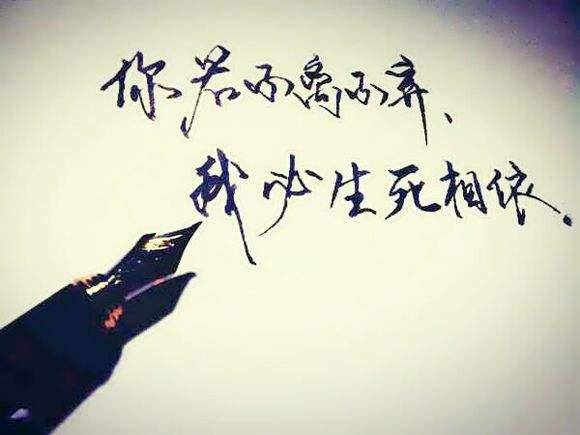 你若不离不弃、
我必生死相依.